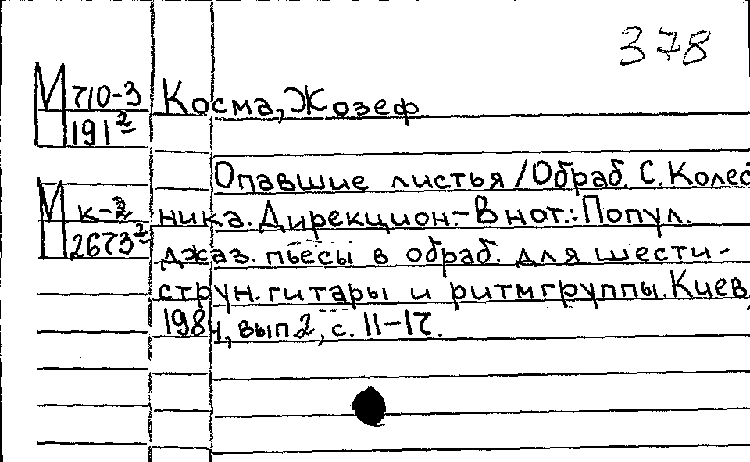 378
М 710-3 Косма, Жозеф
191²
Опавшие листья /Обраб. С. Колес
М К-3 ника. Дирекцион.- В нот.: Попул.
2673² джаз. пьесы в обраб. для шести-
струн. гитары и ритмгруппы. Киев,
1984, вып 2, с. 11-17.